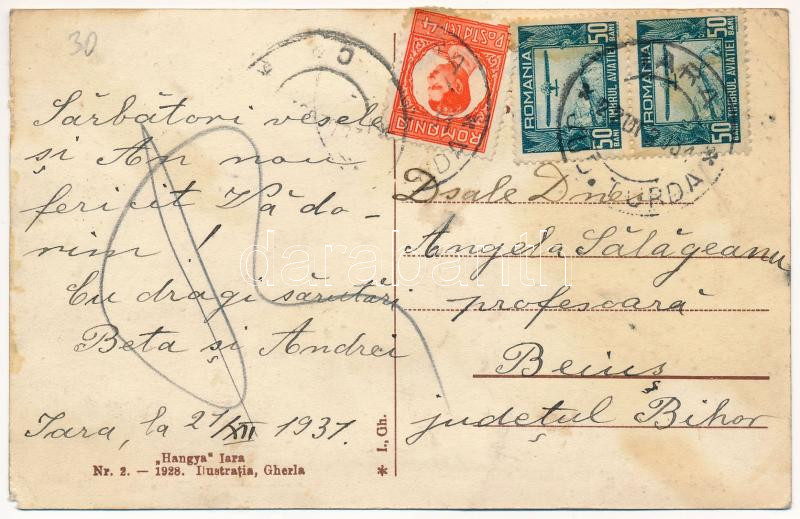 30
Sărbători vesele
și An nou
fericit Vă do-
rim !
Cu dragi sărutări
Beta și Andrei
Iara, la 21/XII 1931.
"Hangya" Iara
Nr. 2. — 1928. Ilustrația, Gherla
* I., Gh.
ROMANIA
ROMANIA
50 BANI
TIMBRUL AVIAȚIEI
ROMANIA
50 BANI
TIMBRUL AVIAȚIEI
IARA
TURDA
Dsale Dnei
Angela Sălăgeanu
profesoară
Beiuș
județul Bihor
darabanth